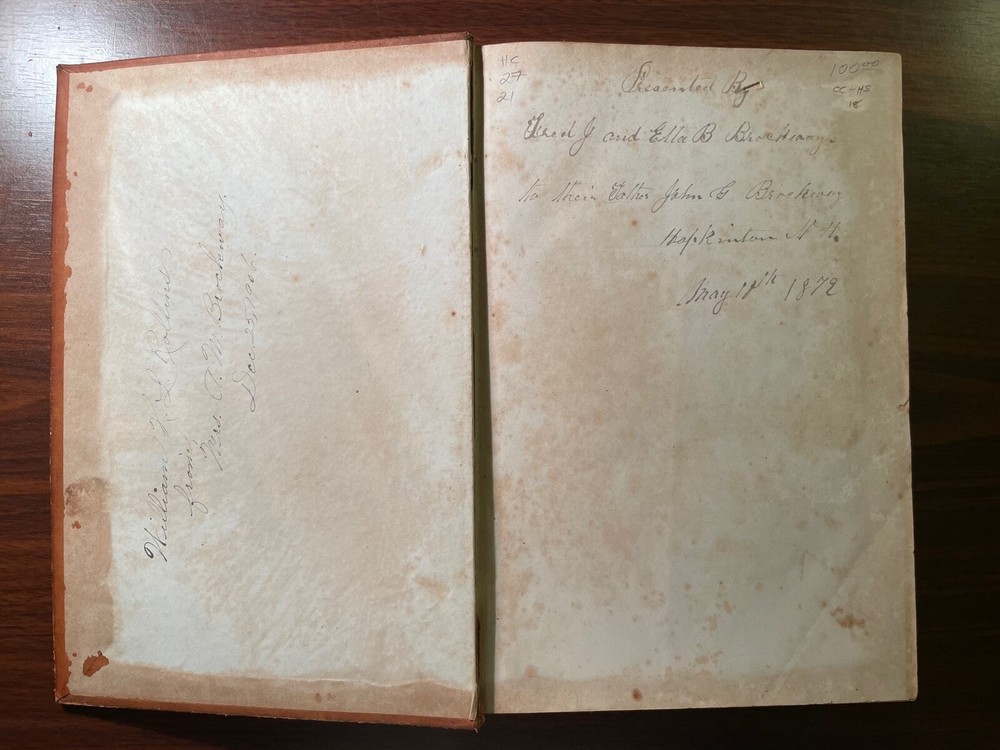 William N. L. Rollins
from,
Mrs. A. M. Brockway.
Dec-25, 1906.
11C
27
21
100.00
CC-HS
18
Presented By
Fred J and Ella B Brockway.
to their Father John G Brockway
Hopkinton N H.
May 18th 1872